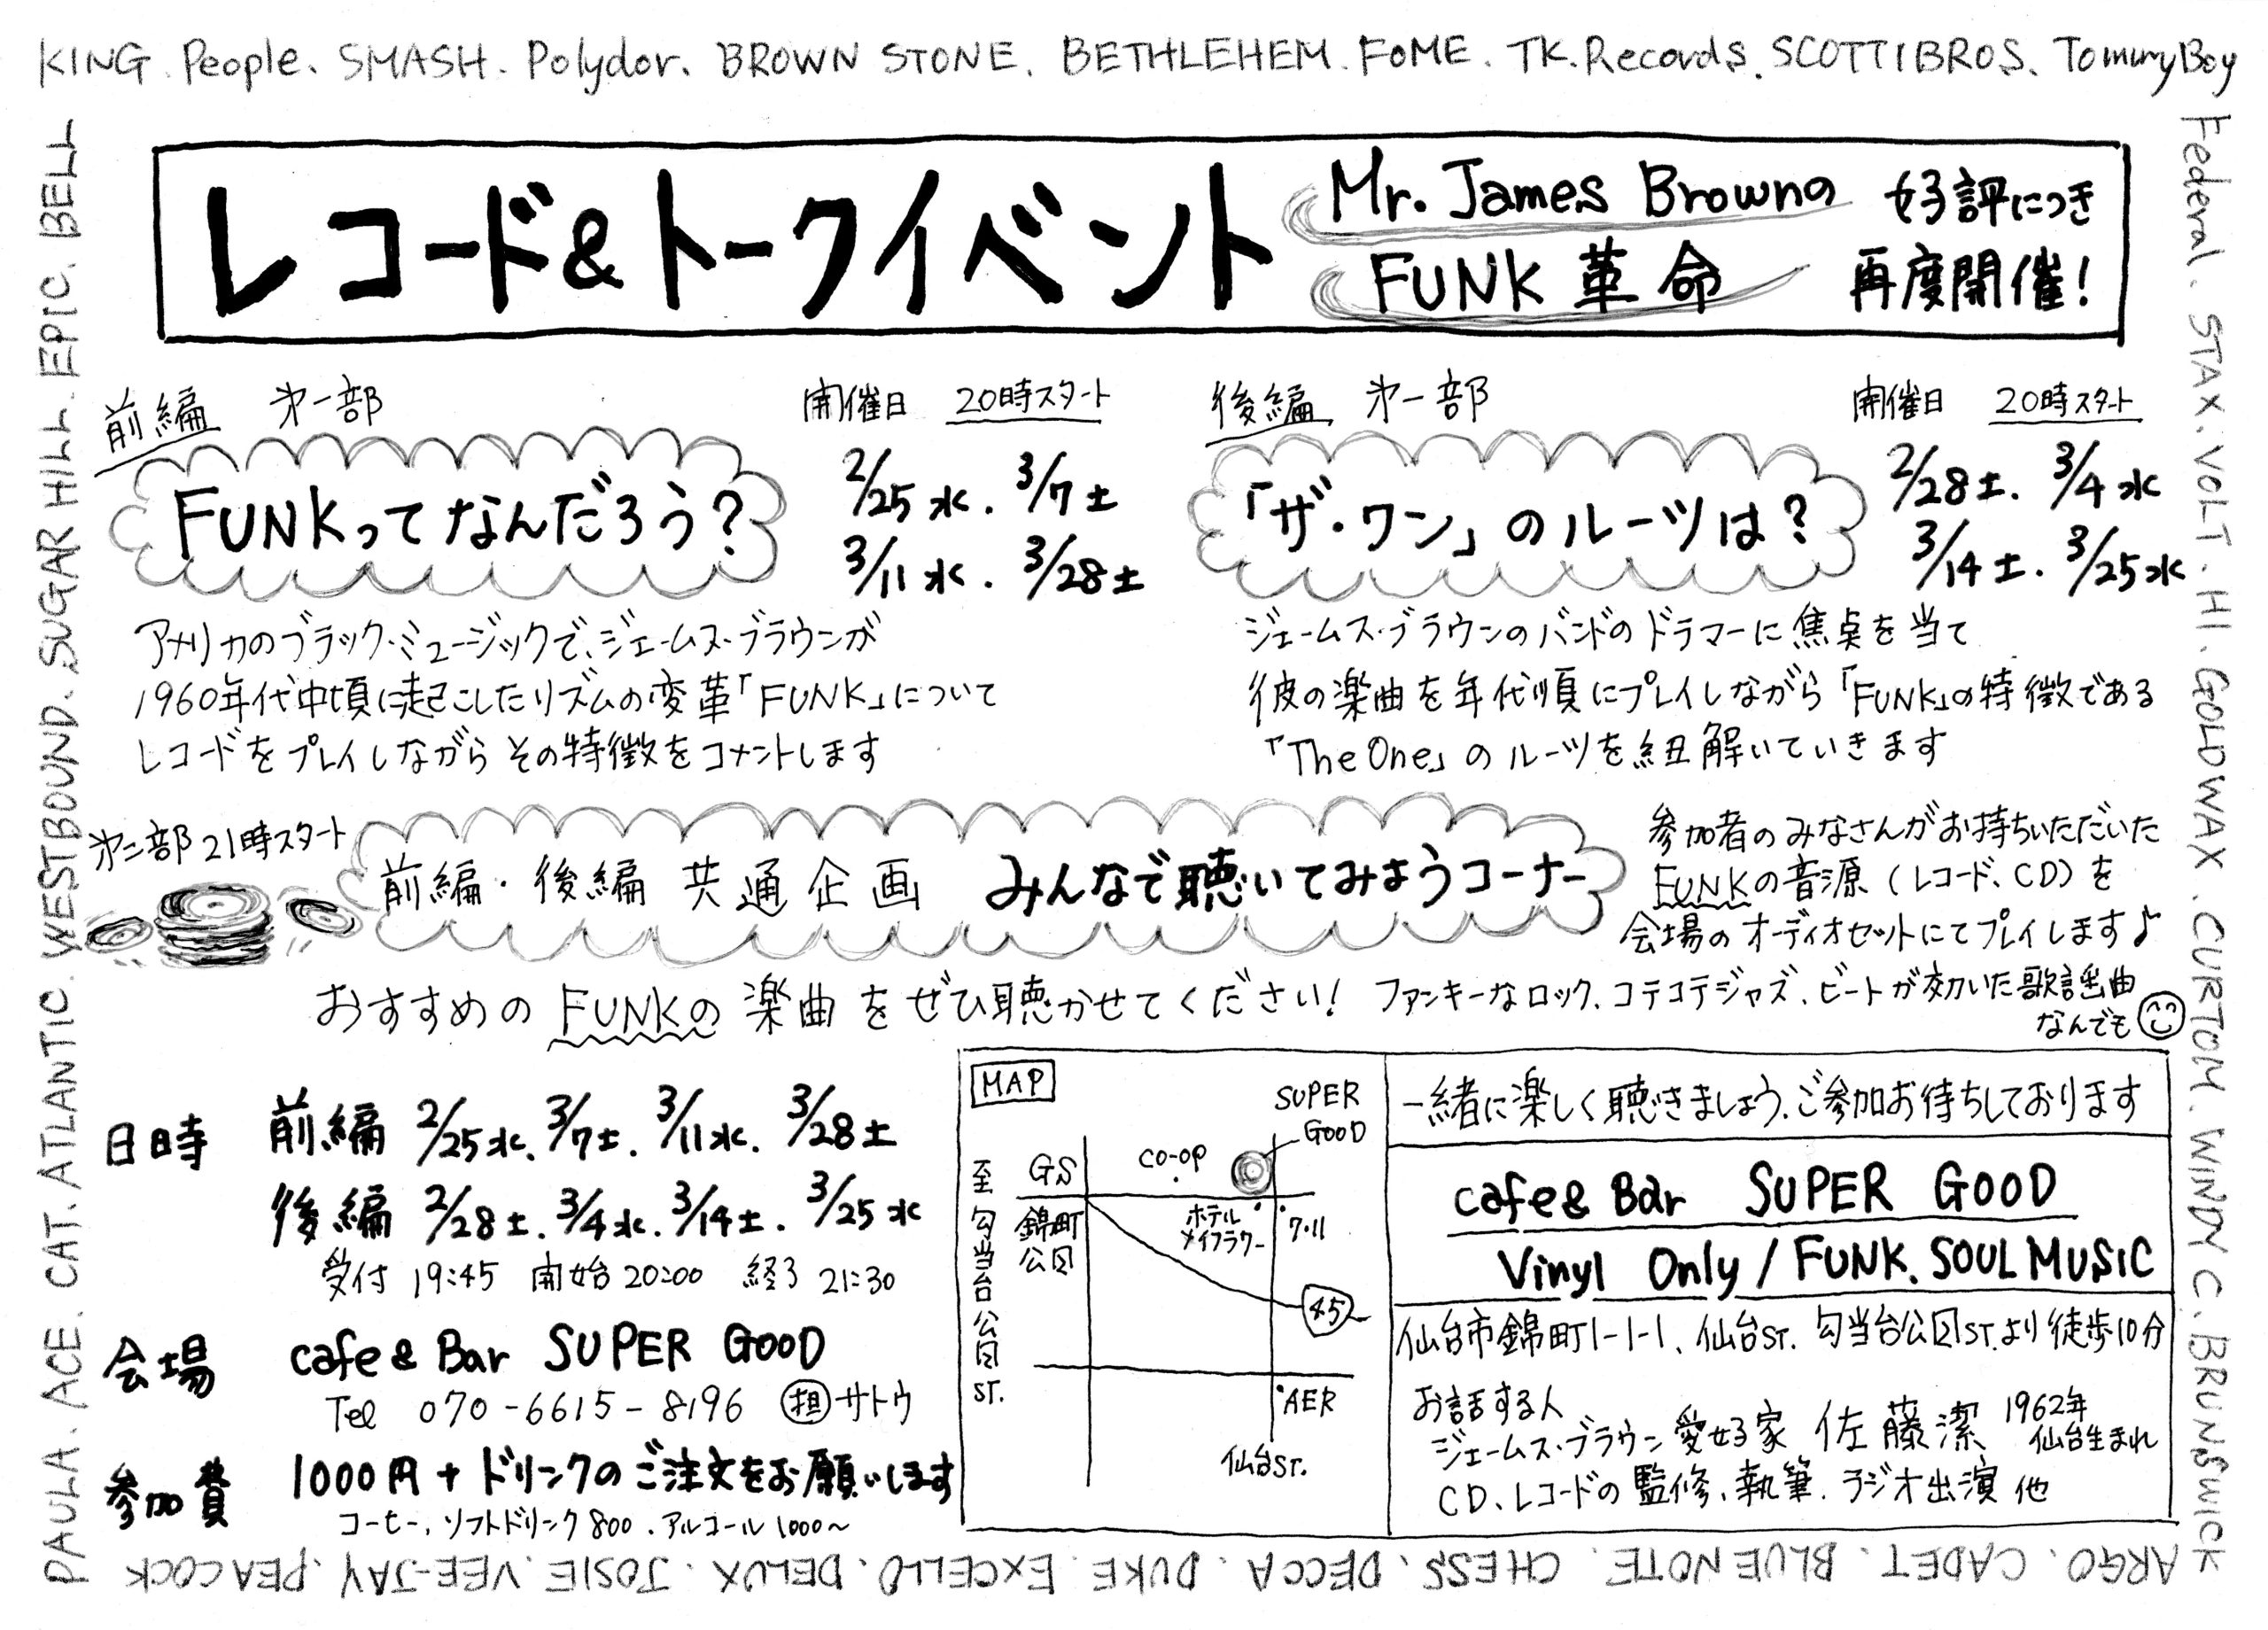 KING. People. SMASH. Polydor. BROWN STONE. BETHLEHEM. FoME. TK.Records. SCOTTI BROS. Tommy Boy
Federal. STAX. VOLT. HI. GOLDWAX. CURTOM. WINDY C. BRUNSWICK
ARGO. CADET. BLUE NOTE. CHESS. DECCA. DUKE. EXCELLO. DELUX. JOSIE. VEE-JAY. PEACOCK
PAULA. ACE. CAT. ATLANTIC. WESTBOUND. SUGAR HILL. EPIC. BELL
レコード&トークイベント
Mr. James Brownの
FUNK 革命
好評につき
再度開催!
前編 第一部
開催日 20時スタート
FUNKってなんだろう?
2/25水. 3/7土
3/11水. 3/28土
アメリカのブラック・ミュージックで、ジェームス・ブラウンが
1960年代中頃に起こしたリズムの変革「FUNK」について
レコードをプレイしながらその特徴をコメントします
後編 第一部
開催日 20時スタート
「ザ・ワン」のルーツは?
2/28土. 3/4水
3/14土. 3/25水
ジェームス・ブラウンのバンドのドラマーに焦点を当て
彼の楽曲を年代順にプレイしながら「FUNK」の特徴である
「The One」のルーツを紐解いていきます
第二部 21時スタート
前編・後編 共通企画 みんなで聴いてみようコーナー
参加者のみなさんがお持ちいただいた
FUNKの音源(レコード、CD)を
会場のオーディオセットにてプレイします♪
おすすめのFUNKの楽曲をぜひ聴かせてください! ファンキーなロック、コテコテジャズ、ビートが効いた歌謡曲
なんでも
日時 前編 2/25水. 3/7土. 3/11水. 3/28土
後編 2/28土. 3/4水. 3/14土. 3/25水
受付 19:45 開始 20:00 終了 21:30
会場 cafe & Bar SUPER GOOD
Tel 070-6615-8196 担サトウ
参加費 1000円+ドリンクのご注文をお願いします
コーヒー、ソフトドリンク800、アルコール1000~
MAP
SUPER
GOOD
CO-OP
GS
至勾当台公园ST.
錦町
公园
ホテル
メイフラワー
7・11
45
AER
仙台ST.
一緒に楽しく聴きましょう、ご参加お待ちしております
cafe & Bar SUPER GOOD
Vinyl Only / FUNK. SOUL MUSIC
仙台市錦町1-1-1、仙台ST. 勾当台公园ST.より徒歩10分
お話する人
ジェームス・ブラウン愛好家 佐藤潔 1962年
仙台生まれ
CD、レコードの監修、執筆、ラジオ出演 他